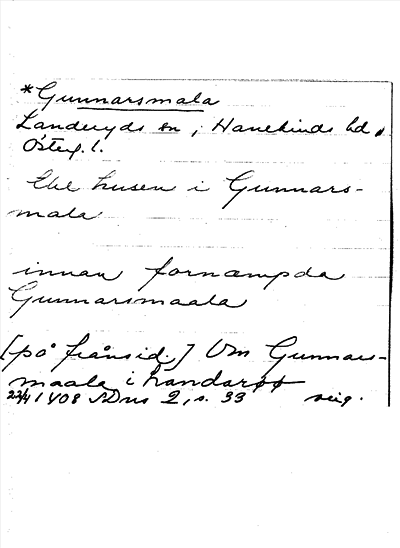 *Gunnarsmala
Landeryds sn, Hanekinds hd,
Österg. l.
Ebe husen i Gunnars-
mala
innan fornæmpda
Gunnarsmaala
[på frånsid.] Om Gunnars-
maala i handarøø
22/4 1408 SDns 2, s. 33 orig.